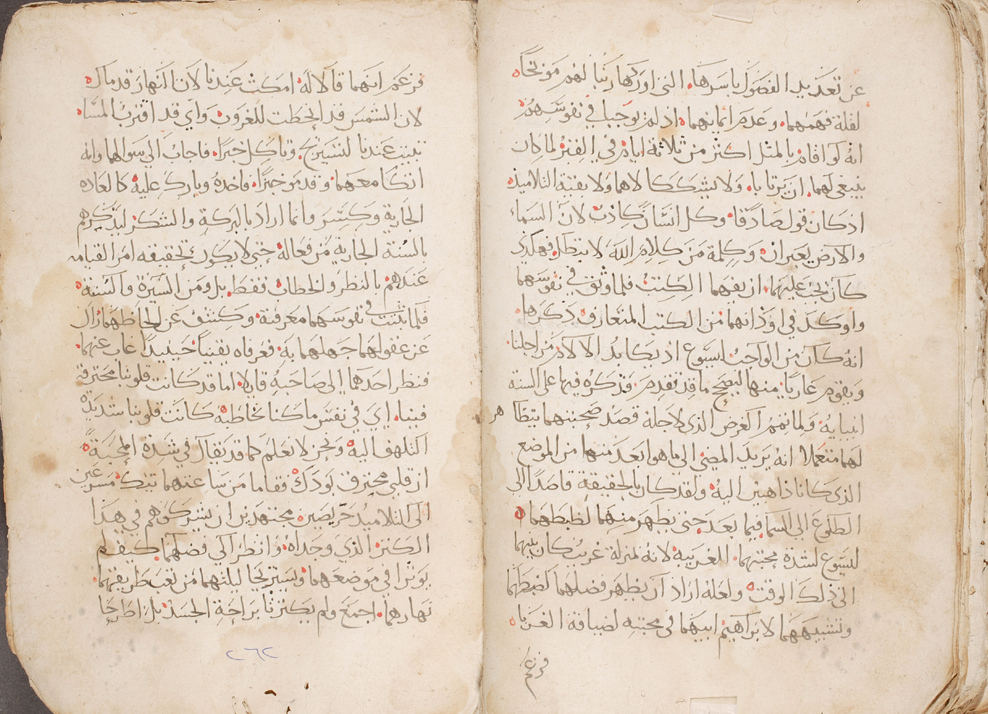 عن تعديد الفصول باسرها، التى اوردها ربنا لهم موبخاه
لقلة فهمهما، وعدم ايمانهما، اذ لم يوجبا في نفوسهم
انه لو اقام بالمثل اكثر من ثلاثة ايام في القبر لما كان
ينبغى لهما ان يرتابا، ولا يشككا لاهما ولا بقية التلاميذ
اذ كان قوله صادقا، وكل انسان كاذب لان السماء
والارض يعبران، وكلمة من كلام الله لا تبطل، فهكذى
كان يجب عليهما، ان يفهما الكتب، فلما وثق في نفوسهما
واوكد في اذانهما من الكتب المتعارف ذكرها
انه كان من الواجب ليسوع ان يكابد الالام من اجلنا
ويقوم عاريا منها ليصح ما قد تقدم، فذكره فيها على السنة
انبيائه، ولما تمم الغرض الذى لاجله قصد صحبتهما تبطا هر
لهما متعملا انه يريد المضى الى ما هو ابعد منهما من الموضع
الذى كانا ذاهبين اليه، ولقد كان بالحقيقة قاصدا الى
الطلوع الى السما فيما بعد حتى يظهر منهما لضبطهما
ليسوع لشدة محبتهما، الغريبة لانه بمنزلة غريب كان بينهما
الى ذلك الوقت، ولعله اراد ان يظهر فضلهما لضبطهما
وتشبيههما لابراهيم ابيهما في محبته لضيافة الغربا،
فزعم
فزعم انهما قالا له امكث عندنا لان النهار قد مال،
لان الشمس قد انحطت للغروب، واى قد اقترب المسا،
تبيت عندنا لتستريح، وتاكل خبزا، فاجاب الى سوالهما وانه
اتكا معهما، وقدمو خبزا، فاخذه وبارك عليه كالعاده
الجارية وكسر وانما اراد بالبركة والشكر ليذكرهم
بالسنة الجارية من فعاله حتى لا يكون تحقيقه امر القيامه
عندهم بالنظر والخطاب فقط بل ومن السيرة والسنة
فلما ثبتت في نفوسهما معرفته، وكشف عن الحاظهما زال
عن عقولهما جهلهما به، فعرفاه يقينا، حينيذا غاب عنهما،
فنظر احدهما الى صاحبه قايلا، اما قد كانت قلوبنا محترقة
فينا، اي في نفس ما كنا نخاطبه كانت قلوبنا شديدة
التلهف اليه، ونحن لا نعلم كما قد يقال في شدة المحبة،
ان قلبى محترق بودك، فقاما من ساعتهما تيك مسرعين
الى التلاميذ حريصين، مجتهدين ان يشركوهم في هذا
الكنز الذي وجداه، وانظر الى فضلهما كيف لم
يوثرا في موضعهما، ويستريحا ليلتهما من تعب طريقهما
نهارهما اجمع ولم يكترثا براحة الجسد بل اطرحا
٢٦٢